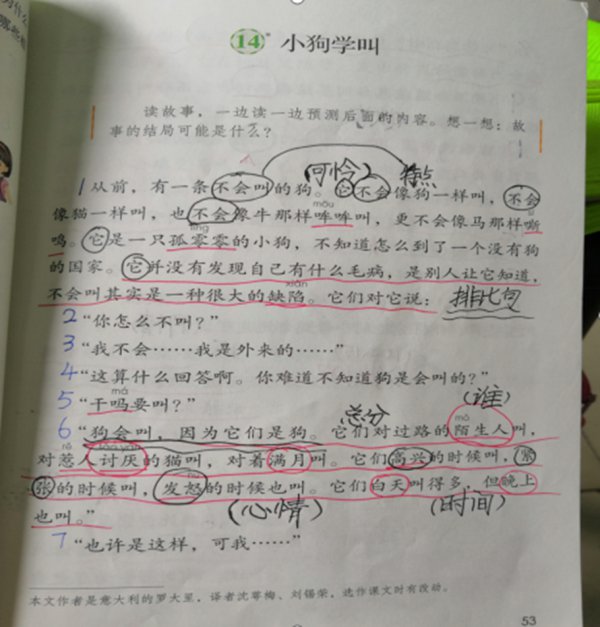 14* 小狗学叫
读故事，一边读一边预测后面的内容。想一想：故
事的结局可能是什么？
(可怜) 特点
1 从前，有一条不会叫的狗。它不会像狗一样叫，不会
像猫一样叫，也不会像牛那样哞哞叫，更不会像马那样嘶
鸣。它是一只孤零零的小狗，不知道怎么到了一个没有狗
的国家。它并没有发现自己有什么毛病，是别人让它知道，
不会叫其实是一种很大的缺陷。它们对它说： 排比句
2 “你怎么不叫？”
3 “我不会……我是外来的……”
4 “这算什么回答啊。你难道不知道狗是会叫的？”
5 “干吗要叫？”
总分 (谁)
6 “狗会叫，因为它们是狗。它们对过路的陌生人叫，
对惹人讨厌的猫叫，对着满月叫。它们高兴的时候叫，紧
张的时候叫，发怒的时候也叫。它们白天叫得多，但晚上
也叫。” (心情) (时间)
7 “也许是这样，可我……”
本文作者是意大利的罗大里，译者沈萼梅、刘锡荣，选作课文时有改动。
53